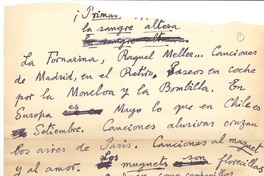 ¡Primav...
la sangre altera
①
La Fornarina, Raquel Meller... Canciones
de Madrid, en el Retiro, Paseos en coche
por la Moncloa y la Bombilla. En
Europa es Mayo lo que en Chile es
Setiembre. Canciones alusivas cruzan
los aires de París. Canciones al muguet
y al amor. muguets son florecillas
como campanillas